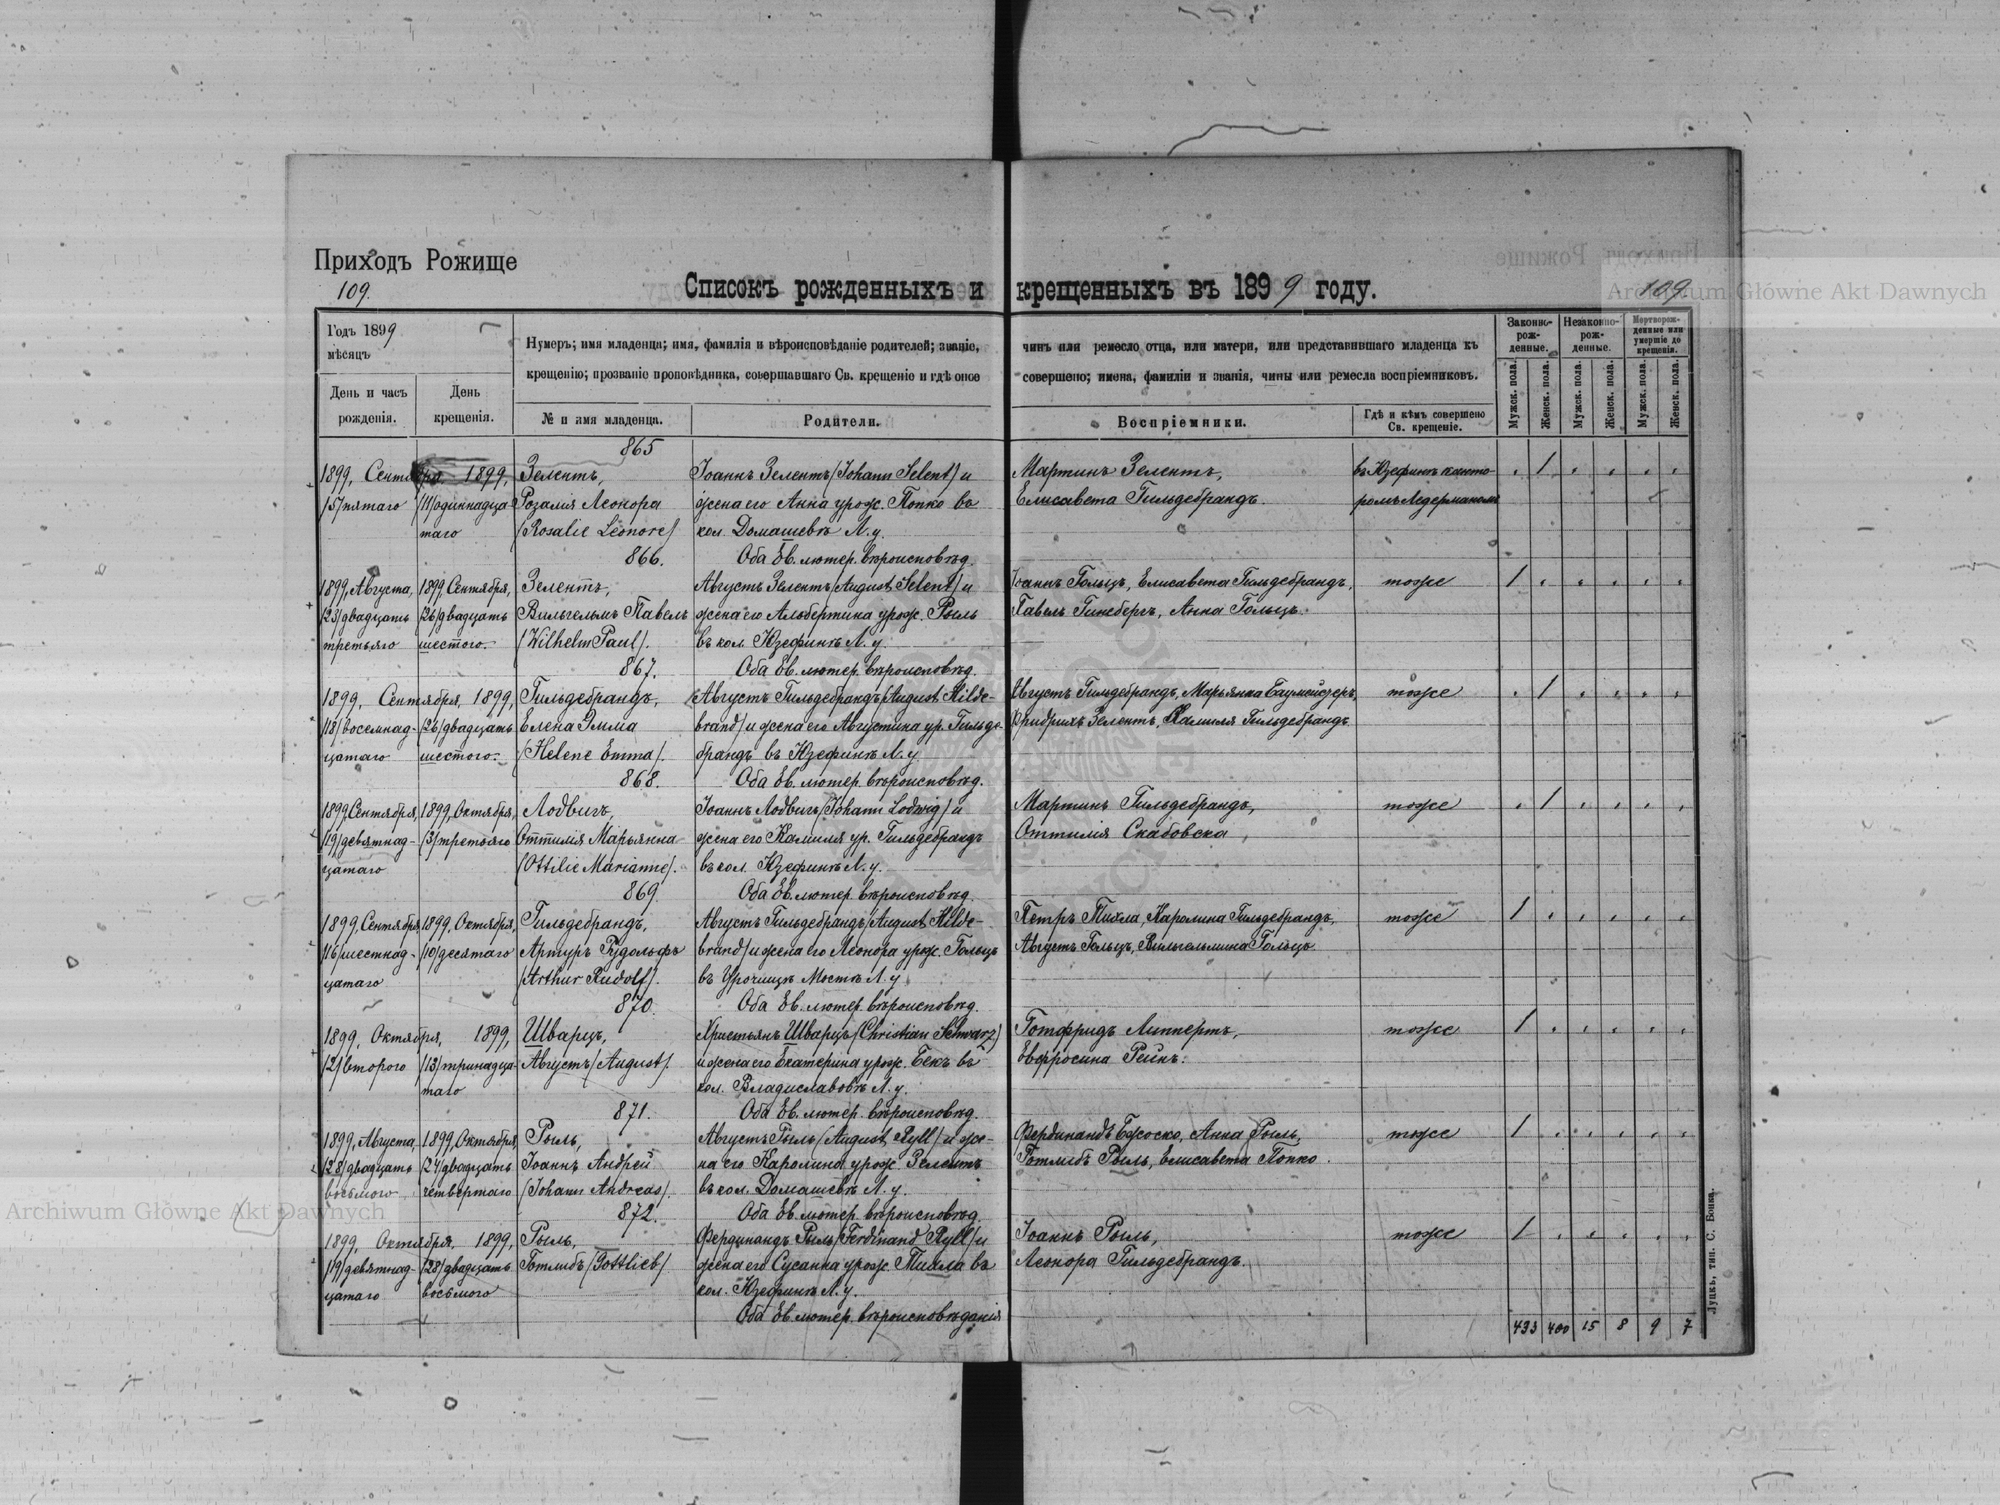 Приходъ Рожище
109.
Списокъ рожденныхъ и крещенныхъ въ 1899 году.
109.
Archiwum Główne Akt Dawnych
Годъ 1899
мѣсяцъ
День и часъ
рожденія.
День
крещенія.
Нумеръ; имя младенца; имя, фамилія и вѣроисповѣданіе родителей; званіе, чинъ или ремесло отца, или матери, или представившаго младенца къ
крещенію; прозваніе проповѣдника, совершавшаго Св. крещеніе и гдѣ оное совершено; имена, фамиліи и званія, чины или ремесла воспріемниковъ.
№ и имя младенца.
Родители.
Воспріемники.
Гдѣ и кѣмъ совершено
Св. крещеніе.
Законно-
рож-
денные.
Незаконно-
рож-
денные.
Мертворож-
денные или
умершіе до
крещенія.
Мужск. пола.
Женск. пола.
Мужск. пола.
Женск. пола.
Мужск. пола.
Женск. пола.
865
1899, Сентября, 1899,
/5/пятаго
/11/одиннадца-
таго
Зелентъ,
Розалія Леонора
/Rosalie Leonore/
Іоаннъ Зелентъ/Johann Selent/ и
жена его Анна урож. Попко въ
кол. Домашевѣ Л. у.
Оба Ев. лютер. вѣроисповѣд.
Мартинъ Зелентъ,
Елисавета Гильдебрандъ.
въ Юзефинѣ канто-
ромъ Ледерманомъ
866.
1899, Августа,
/23/двадцать
третьяго
1899 Сентября,
/26/двадцать
шестого.
Зелентъ,
Вильгельмъ Павелъ
/Wilhelm Paul/.
Августъ Зелентъ/August Selent/ и
жена его Альбертина урож. Рыль
въ кол. Юзефинѣ Л. у.
Оба Ев. лютер. вѣроисповѣд.
Іоаннъ Гольцъ, Елисавета Гильдебрандъ,
Павелъ Гинсбергъ, Анна Гольцъ.
тоже
867.
1899, Сентября, 1899,
/18/восемнад-
цатаго
/26/двадцать
шестого.
Гильдебрандъ,
Елена Эмма
/Helene Emma/.
Августъ Гильдебрандъ/August Hilde-
brand/ и жена его Августина ур. Гильде-
брандъ въ Юзефинѣ Л. у.
Оба Ев. лютер. вѣроисповѣд.
Августъ Гильдебрандъ, Марьянна Баумейстеръ,
Фридрихъ Зелентъ, Камиля Гильдебрандъ
тоже
868.
1899, Сентября,
/19/девятнад-
цатаго
1899, Октября,
/3/третьяго
Лодвигъ,
Оттилія Марьянна
/Ottilie Marianne/.
Іоаннъ Лодвигъ/Johann Lodwig/ и
жена его Камиля ур. Гильдебрандъ
въ кол. Юзефинѣ Л. у.
Оба Ев. лютер. вѣроисповѣд.
Мартинъ Гильдебрандъ,
Оттилія Скабовска,
тоже
869.
1899, Сентября,
/16/шестнад-
цатаго
1899, Октября,
/10/десятаго
Гильдебрандъ,
Артуръ Рудольфъ
/Arthur Rudolf/.
Августъ Гильдебрандъ/August Hilde-
brand/ и жена его Леонора урож. Гольцъ
въ Урочищѣ Мостѣ Л. у.
Оба Ев. лютер. вѣроисповѣд.
Петръ Тихла, Каролина Гильдебрандъ,
Августъ Гольцъ, Вильгельмина Гольцъ
тоже
870.
1899, Октября, 1899,
/2/второго
/13/тринадца-
таго
Шварцъ,
Августъ/August/.
Христьянъ Шварцъ/Christian Schwarz/
и жена его Екатерина урож. Бекъ въ
кол. Владиславовѣ Л. у.
Оба Ев. лютер. вѣроисповѣд.
Готфридъ Липпертъ,
Евфросина Рейнъ.
тоже
871.
1899, Августа,
/28/двадцать
восьмого
1899, Октября,
/24/двадцать
четвертаго
Рыль,
Іоаннъ Андрей
/Johann Andreas/.
Августъ Рыль/August Ryll/ и же-
на его Каролина урож. Зелентъ
въ кол. Домашевѣ Л. у.
Оба Ев. лютер. вѣроисповѣд.
Фердинандъ Анна Рыль,
Готлибъ Рыль, Елисавета Попко.
тоже
872.
1899, Октября, 1899,
/19/девятнад-
цатаго
/28/двадцать
восьмого
Рыль,
Готлибъ/Gottlieb/.
Фердинандъ Рыль/Ferdinand Ryll/ и
жена его Сусанна урож. въ
кол. Юзефинѣ Л. у.
Оба Ев. лютер. вѣроисповѣданія
Іоаннъ Рыль,
Леонора Гильдебрандъ.
тоже
433 400 15 8 9 7
Луцкъ, тип. С. Бонка.
Archiwum Główne Akt Dawnych